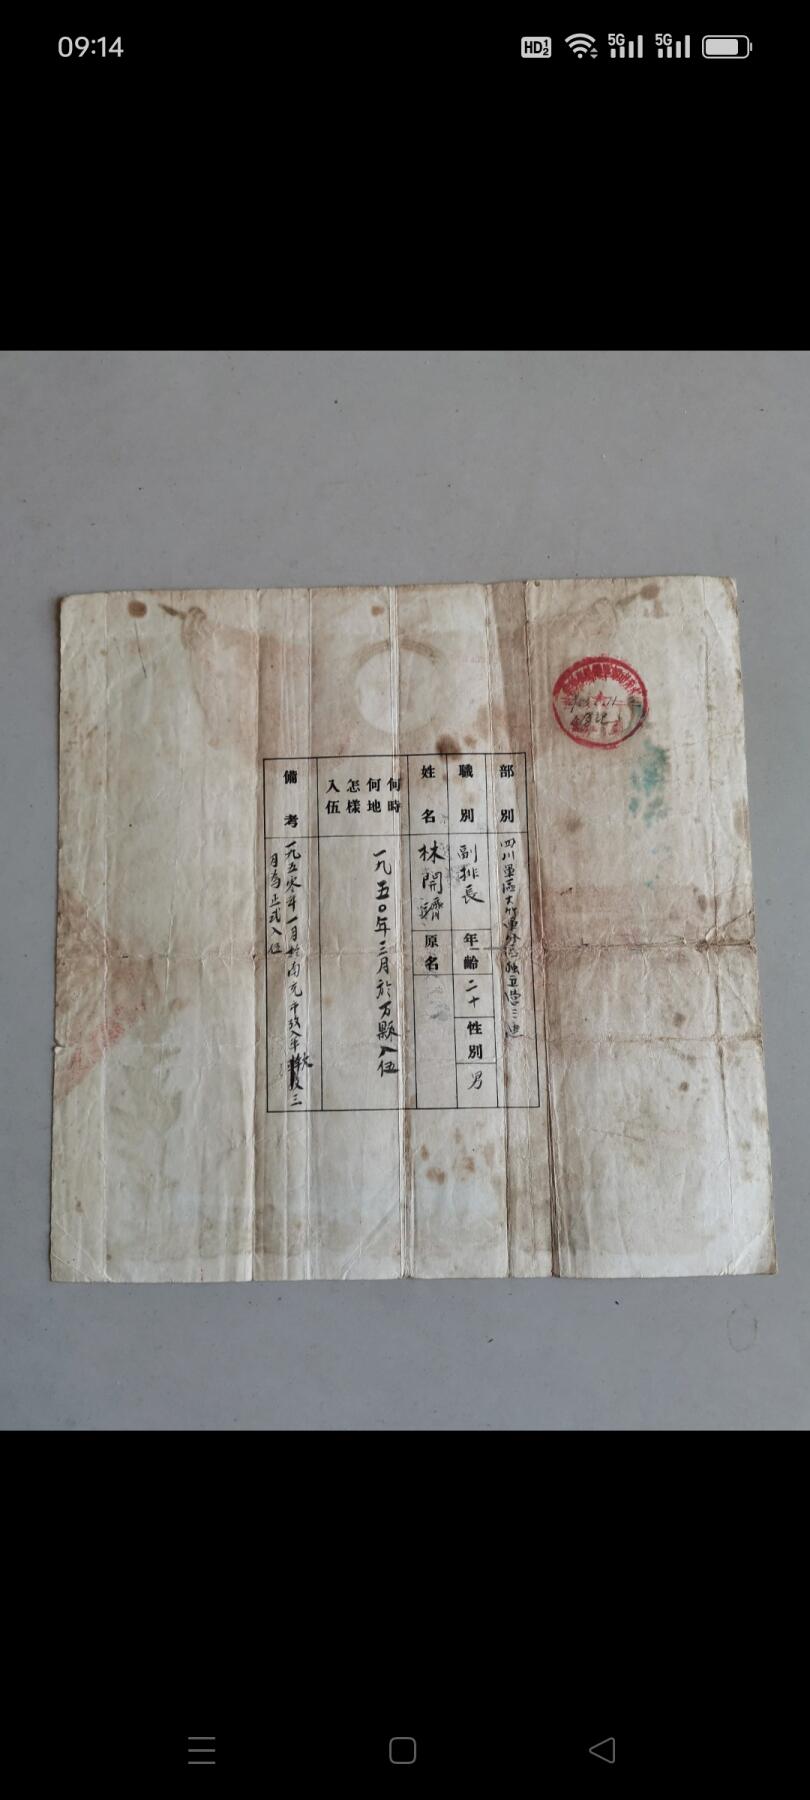 09:14
HD 1 2
5G
5G
部別
四川軍區大竹軍分區独立营三連
職別
副排長
年齡
二十
性別
男
姓名
林開
原名
何時
何地
怎樣
入伍
一九五〇年三月於万縣入伍
備考
一九五零年一月於南充干
三
月為正式入伍